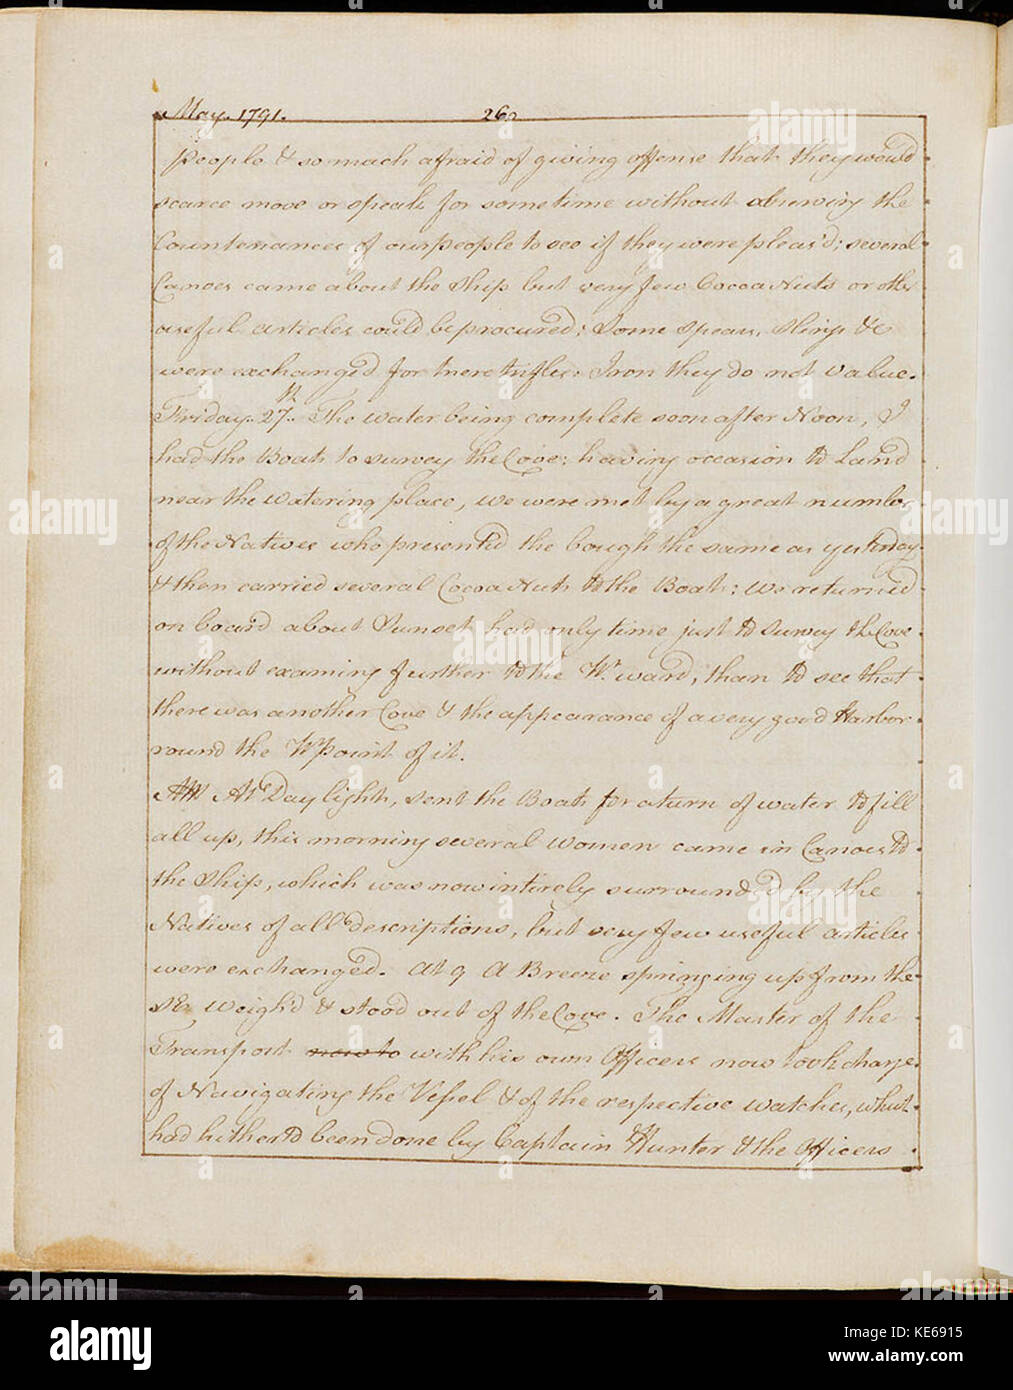 May. 1791.
260
people & so much afraid of giving offense that they would
scarce move or speak for sometime without observing the
Countenances of our people to see if they were pleas'd; several
Canoes came about the Ship but very few Cocoa Nuts or other
useful articles could be procured; Some Spears, Slings &c
were exchanged for mere trifles: Iron they do not value.
Friday. 27th. The water being complete soon after Noon, I
had the Boat to survey the Cove: having occasion to Land
near the watering place, we were met by a great number
of the Natives who presented the bough the same as yesterday
& then carried several Cocoa Nuts to the Boat: We returned
on board about Sunset had only time just to survey the Cove
without examing further to the Wt. ward, than to see that
there was another Cove & the appearance of a very good Harbor
round the W Point of it.
AM At Daylight, sent the Boat for a turn of water to fill
all up, this morning several women came in Canoes to
the Ship, which was now intirely surround'd by the
Natives of all descriptions, but very few useful articles
were exchanged. At 9 A Breeze springing up from the
SE weigh'd & stood out of the Cove. The Master of the
Transport now to with his own Officers now took charge
of Navigating the Vessel & of the respective watches, which
had hitherto been done by Captain Hunter & the Officers
alamy
alamy
alamy
alamy
alamy
alamy
alamy
alamy
alamy
alamy
alamy
alamy
alamy
Image ID: KE6915
www.alamy.com